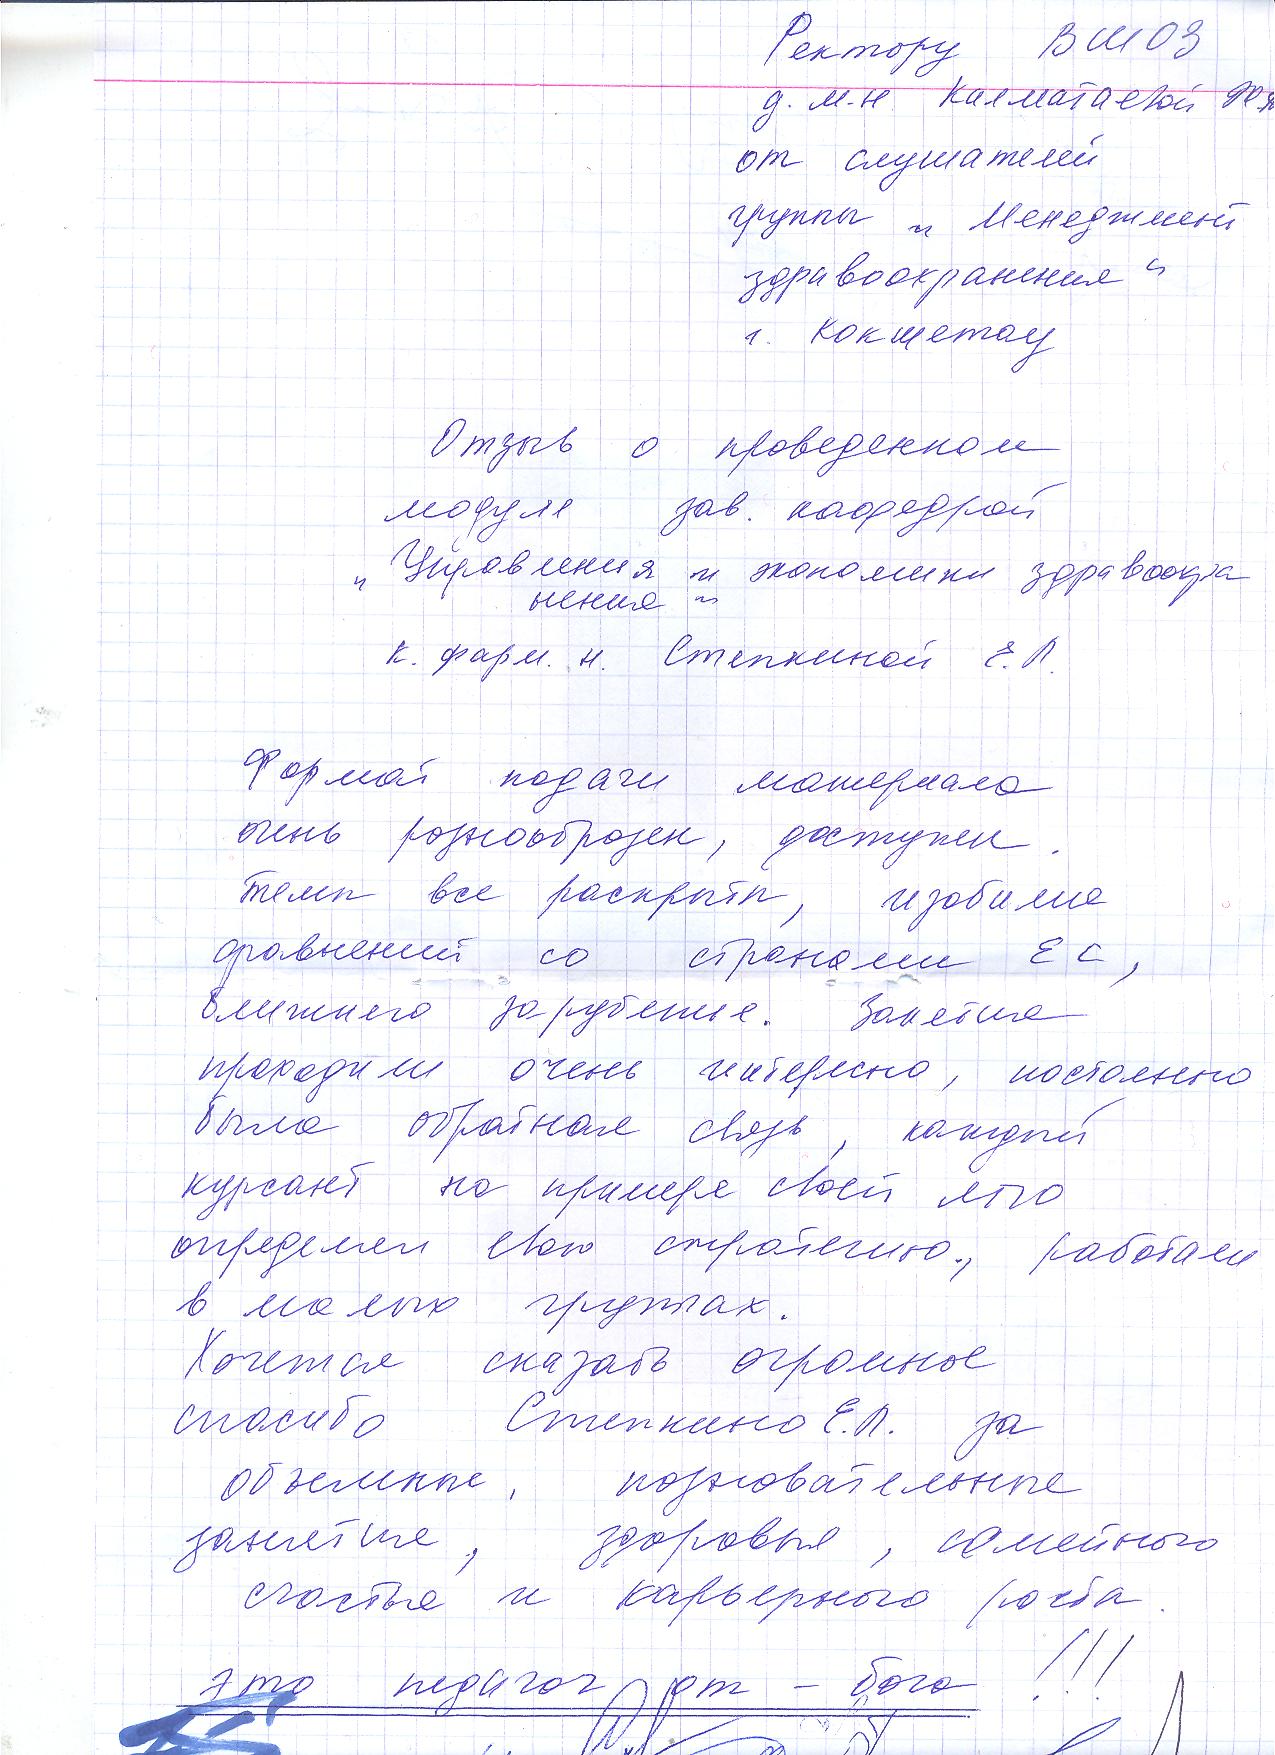 Ректору ВШОЗ
д.м.н. Калматаевой Ж.А
от слушателей
группы „Менеджмент
здравоохранения“
г. Кокшетау
Отзыв о проведенном
модуле зав. кафедрой
„Управления и экономики здравоохра
нения“
к. фарм. н. Степкиной Е.Л.
Формат подачи материала
очень разнообразен, доступен.
Темы все раскрыты, изобилие
сравнений со странами ЕС,
ближнего зарубежье. Занятия
проходили очень интересно, постоянно
была обратная связь, каждый
курсант на примере своей
определял свою стратегию, работали
в малых группах.
Хочется сказать огромное
спасибо Степкиной Е.Л. за
объемные, познавательные
занятия, здоровья, семейного
счастья и карьерного роста.
Это педагог от – бога !!!